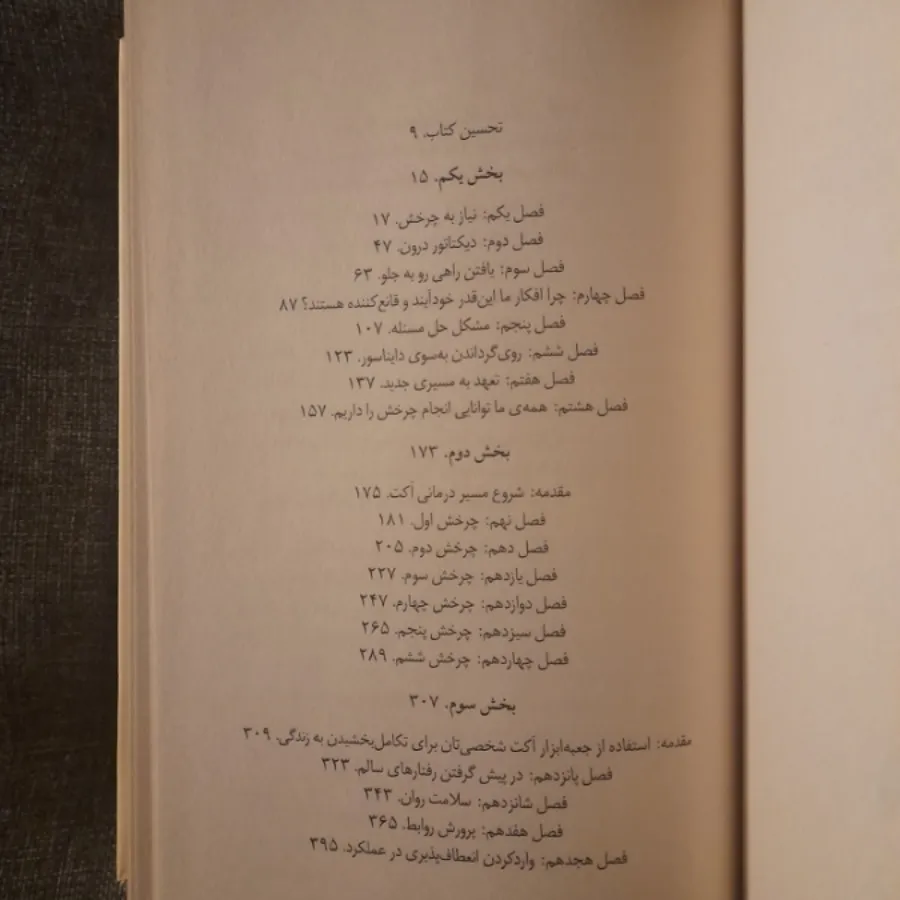 تحسین کتاب. ۹
بخش یکم. ۱۵
فصل یکم: نیاز به چرخش. ۱۷
فصل دوم: دیکتاتور درون. ۴۷
فصل سوم: یافتن راهی رو به جلو. ۶۳
فصل چهارم: چرا افکار ما این‌قدر خودآیند و قانع‌کننده هستند؟ ۸۷
فصل پنجم: مشکل حل مسئله. ۱۰۷
فصل ششم: روی‌گرداندن به‌سوی دایناسور. ۱۲۳
فصل هفتم: تعهد به مسیری جدید. ۱۳۷
فصل هشتم: همه‌ی ما توانایی انجام چرخش را داریم. ۱۵۷
بخش دوم. ۱۷۳
مقدمه: شروع مسیر درمانی آکت. ۱۷۵
فصل نهم: چرخش اول. ۱۸۱
فصل دهم: چرخش دوم. ۲۰۵
فصل یازدهم: چرخش سوم. ۲۲۷
فصل دوازدهم: چرخش چهارم. ۲۴۷
فصل سیزدهم: چرخش پنجم. ۲۶۵
فصل چهاردهم: چرخش ششم. ۲۸۹
بخش سوم. ۳۰۷
مقدمه: استفاده از جعبه‌ابزار آکت شخصی‌تان برای تکامل‌بخشیدن به زندگی. ۳۰۹
فصل پانزدهم: در پیش گرفتن رفتارهای سالم. ۳۲۳
فصل شانزدهم: سلامت روان. ۳۴۳
فصل هفدهم: پرورش روابط. ۳۶۵
فصل هجدهم: واردکردن انعطاف‌پذیری در عملکرد. ۳۹۵